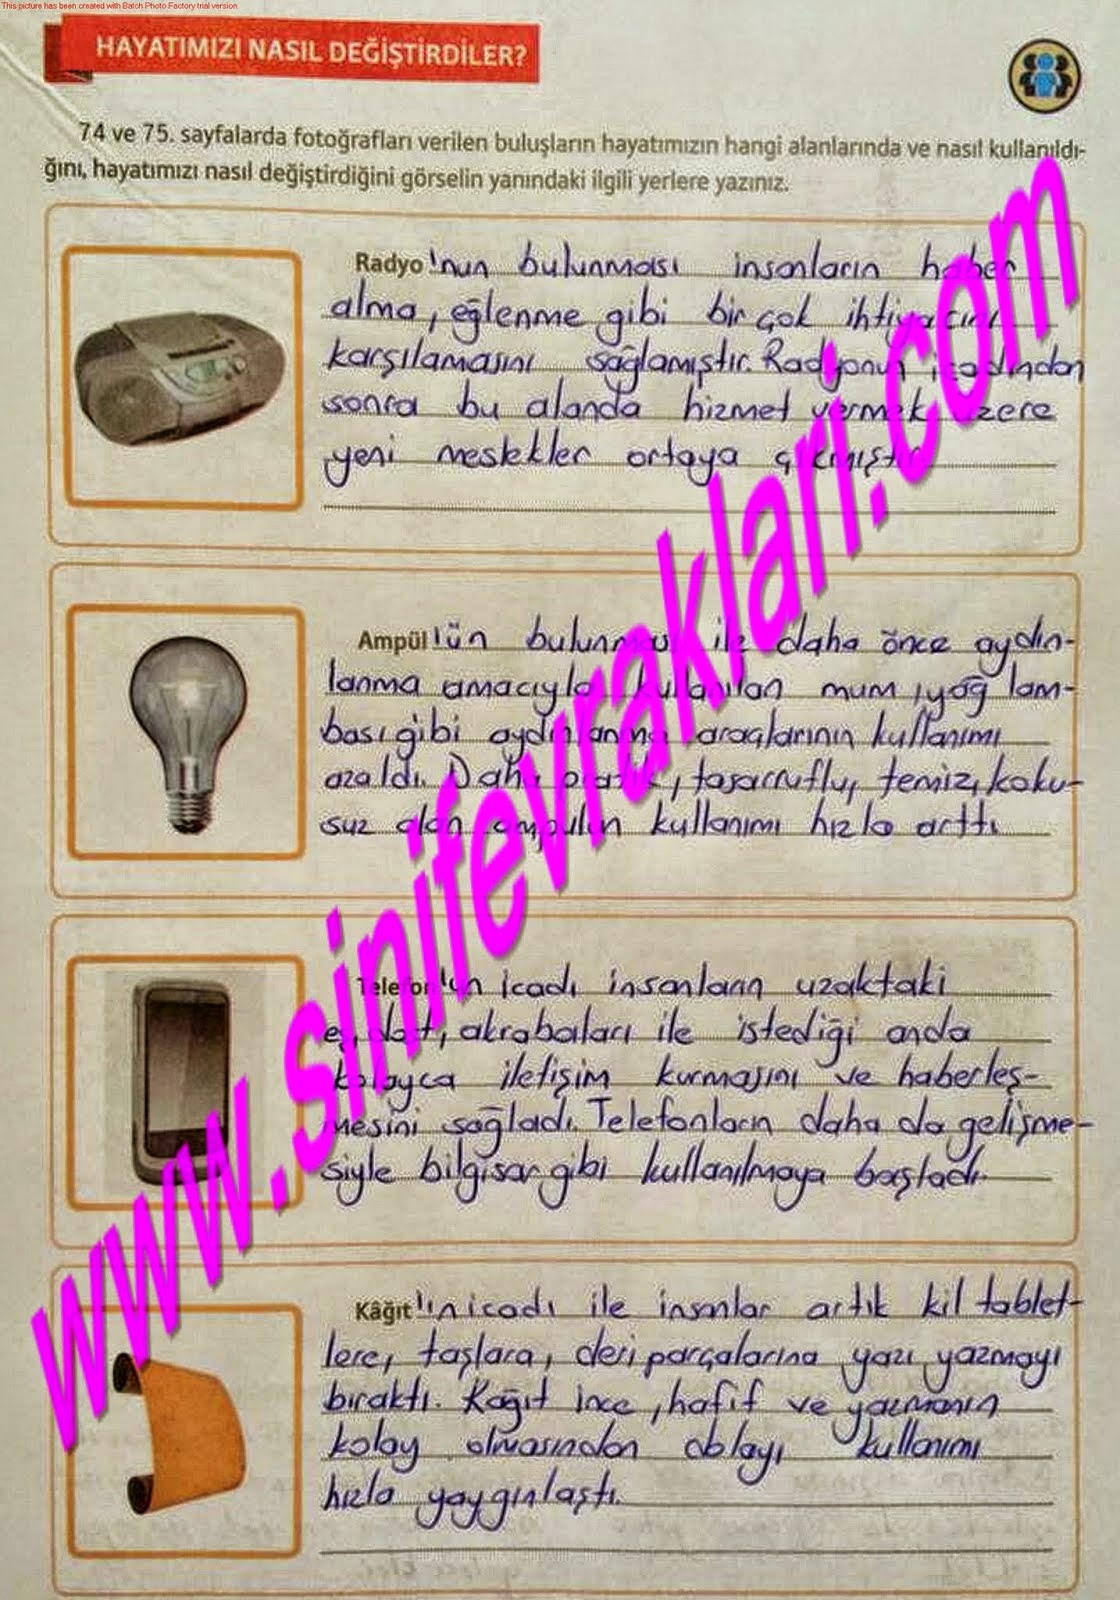 This picture has been created with Batch Photo Factory trial version
HAYATIMIZI NASIL DEĞİŞTİRDİLER?
74 ve 75. sayfalarda fotoğrafları verilen buluşların hayatımızın hangi alanlarında ve nasıl kullanıldı-
ğını, hayatımızı nasıl değiştirdiğini görselin yanındaki ilgili yerlere yazınız.
Radyo'nun bulunması insanların haber
alma, eğlenme gibi bir çok ihtiyacını
karşılamasını sağlamıştır. Radyonun icadından
sonra bu alanda hizmet vermek üzere
yeni meslekler ortaya çıkmıştır
Ampül'ün bulunması ile daha önce aydın-
lanma amacıyla kullanılan mum, yağ lam-
bası gibi aydınlanma araçlarının kullanımı
azaldı. Daha tasarruflu, temiz, koku-
suz olan ampulün kullanımı hızla arttı
Telefon'un icadı insanların uzaktaki
eş, dost, akrabaları ile istediği anda
kolayca iletişim kurmasını ve haberleş-
mesini sağladı. Telefonların daha da gelişme-
siyle bilgisar gibi kullanılmaya başladı.
Kâğıt'ın icadı ile insanlar artık kil tablet-
lere, taşlara, deri parçalarına yazı yazmayı
bıraktı. Kağıt ince, hafif ve yazmanın
kolay olmasından dolayı kullanımı
hızla yaygınlaştı.
www.sinifevraklari.com